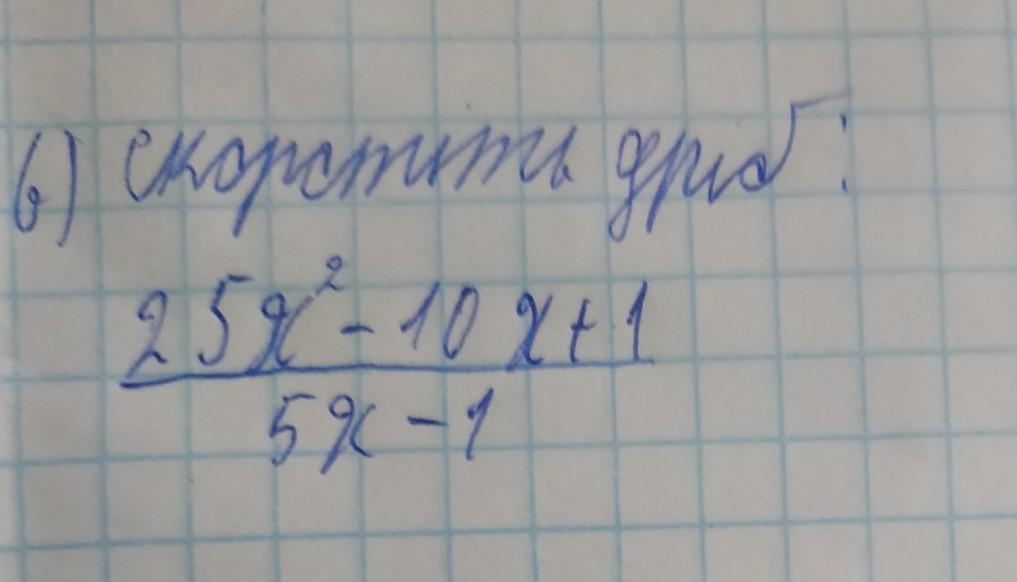 в) скоротіть дріб:
25x² - 10x + 1
5x - 1